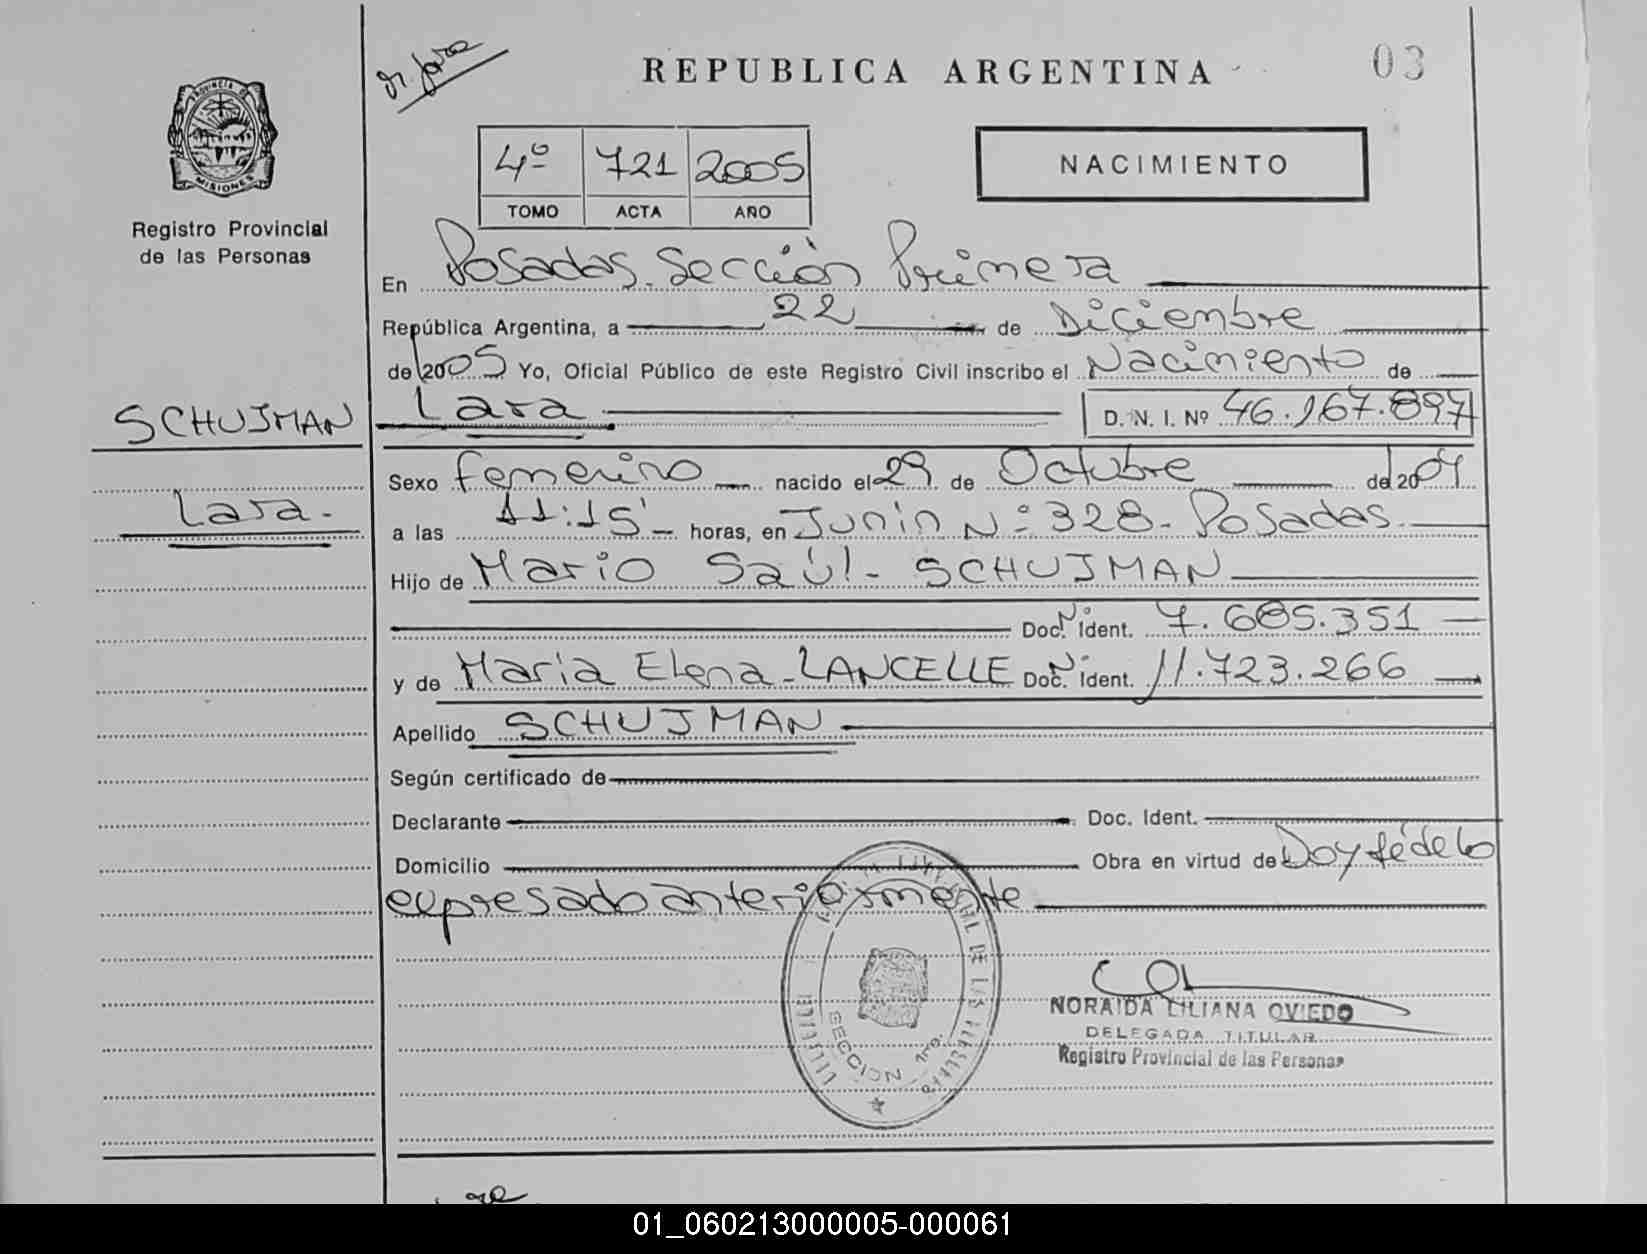 03
REPUBLICA ARGENTINA
PROVINCIA DE
MISIONES
Registro Provincial
de las Personas
4º 721 2005
TOMO ACTA AÑO
NACIMIENTO
En Posadas. Sección Primera
República Argentina, a 22 de Diciembre
de 2005 Yo, Oficial Público de este Registro Civil inscribo el Nacimiento de
SCHUJMAN
Lara D. N. I. Nº 46.167.897
Sexo femenino nacido el 29 de Octubre de 2004
Lara.-
a las 11:15' horas, en Junin Nº 328 - Posadas.
Hijo de Mario Saúl - SCHUJMAN
Doc. Ident. 7.685.351
y de Maria Elena - LANCELLE Doc. Ident. 11.723.266
Apellido SCHUJMAN
Según certificado de
Declarante Doc. Ident.
Domicilio Obra en virtud de Doy fé de lo
expresado anteriormente
SECCION 1ra.
NORAIDA LILIANA OVIEDO
DELEGADA TITULAR
Registro Provincial de las Personas
01_060213000005-000061